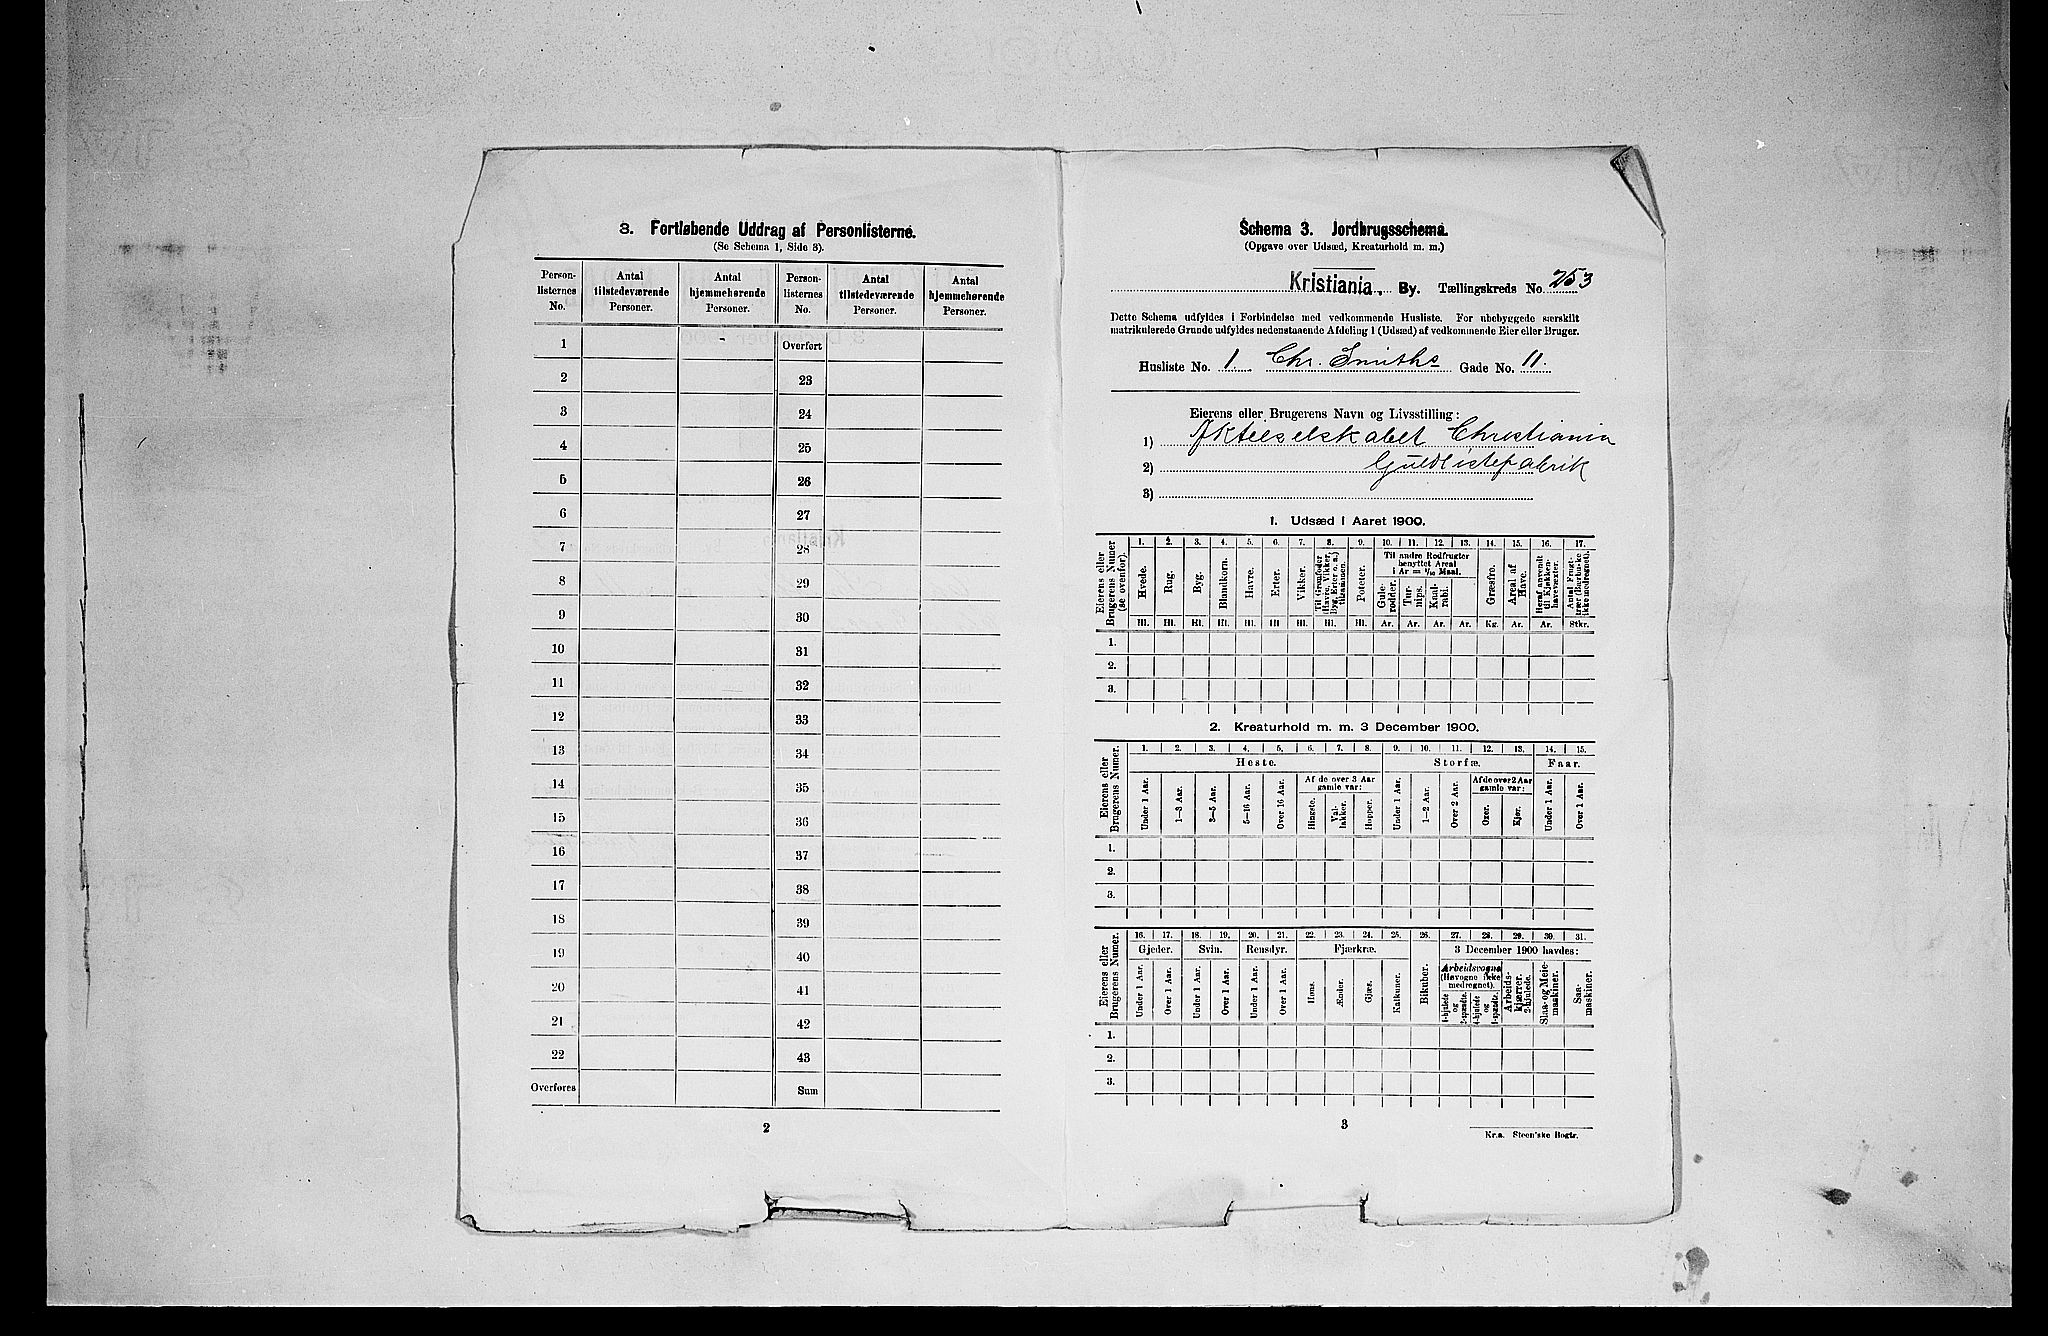 3. Fortløbende Uddrag af Personlisterne.
(Se Schema 1, Side 3).
Person-listernes No. Antal tilstedeværende Personer. Antal hjemmehørende Personer. Person-listernes No. Antal tilstedeværende Personer. Antal hjemmehørende Personer.
1 Overført
2 23
3 24
4 25
5 26
6 27
7 28
8 29
9 30
10 31
11 32
12 33
13 34
14 35
15 36
16 37
17 38
18 39
19 40
20 41
21 42
22 43
Overføres Sum
2
Schema 3. Jordbrugsschema.
(Opgave over Udsæd, Kreaturhold m. m.)
Kristiania. By. Tællingskreds No. 253
Dette Schema udfyldes i Forbindelse med vedkommende Husliste. For ubebyggede særskilt
matrikulerede Grunde udfyldes nedenstaaende Afdeling 1 (Udsæd) af vedkommende Eier eller Bruger.
Husliste No. 1. Chr. Smiths Gade No. 11.
Eierens eller Brugerens Navn og Livsstilling:
1) Aktieselskabet Christiania
2) Guldlistefabrik
3)
1. Udsæd i Aaret 1900.
Eierens eller Brugerens Numer (se ovenfor).
1. 2. 3. 4. 5. 6. 7. 8. 9. 10. 11. 12. 13. 14. 15. 16. 17.
Til andre Rodfrugter benyttet Areal i Ar = 1/10 Maal.
Hvede. Rug. Byg. Blandkorn. Havre. Erter. Vikker. Til Grønfoder (Havre, Vikker, Byg, Erter o. a.) tilsaaning. Poteter. Gule-rødder. Tur-nips. Kaal-rabi. Græsfrø. Areal af Have. Heraf anvendt til Kjøkken-havevæxter. Antal Frugt-trær (Bærbuske ikke medregnet).
Hl. Hl. Hl. Hl. Hl. Hl. Hl. Hl. Hl. Ar. Ar. Ar. Ar. Kg. Ar. Ar. Stkr.
1.
2.
3.
2. Kreaturhold m. m. 3 December 1900.
Eierens eller Brugerens Numer.
1. 2. 3. 4. 5. 6. 7. 8. 9. 10. 11. 12. 13. 14. 15.
Heste. Storfæ. Faar.
Af de over 3 Aar gamle var: Af de over 2 Aar gamle var:
Under 1 Aar. 1—3 Aar. 3—5 Aar. 5—16 Aar. Over 16 Aar. Hingste. Val-lakker. Hopper. Under 1 Aar. 1—2 Aar. Over 2 Aar. Oxer. Kjør. Under 1 Aar. Over 1 Aar.
1.
2.
3.
Eierens eller Brugerens Numer.
16. 17. 18. 19. 20. 21. 22. 23. 24. 25. 26. 27. 28. 29. 30. 31.
Gjeder. Svin. Rensdyr. Fjærkræ. 3 December 1900 havdes:
Arbeidsvogne (Høvogne ikke medregnet).
Under 1 Aar. Over 1 Aar. Under 1 Aar. Over 1 Aar. Under 1 Aar. Over 1 Aar. Høns. Ænder. Gjæs. Kalkuner. Bikuber. 4-hjulede og 2-spændte. 4-hjulede og 1-spændte. Arbeids-kjærrer, 2-hjulede. Slaa- og Meie-maskiner. Saa-maskiner.
1.
2.
3.
3
Kr.a. Steen'ske Bogtr.